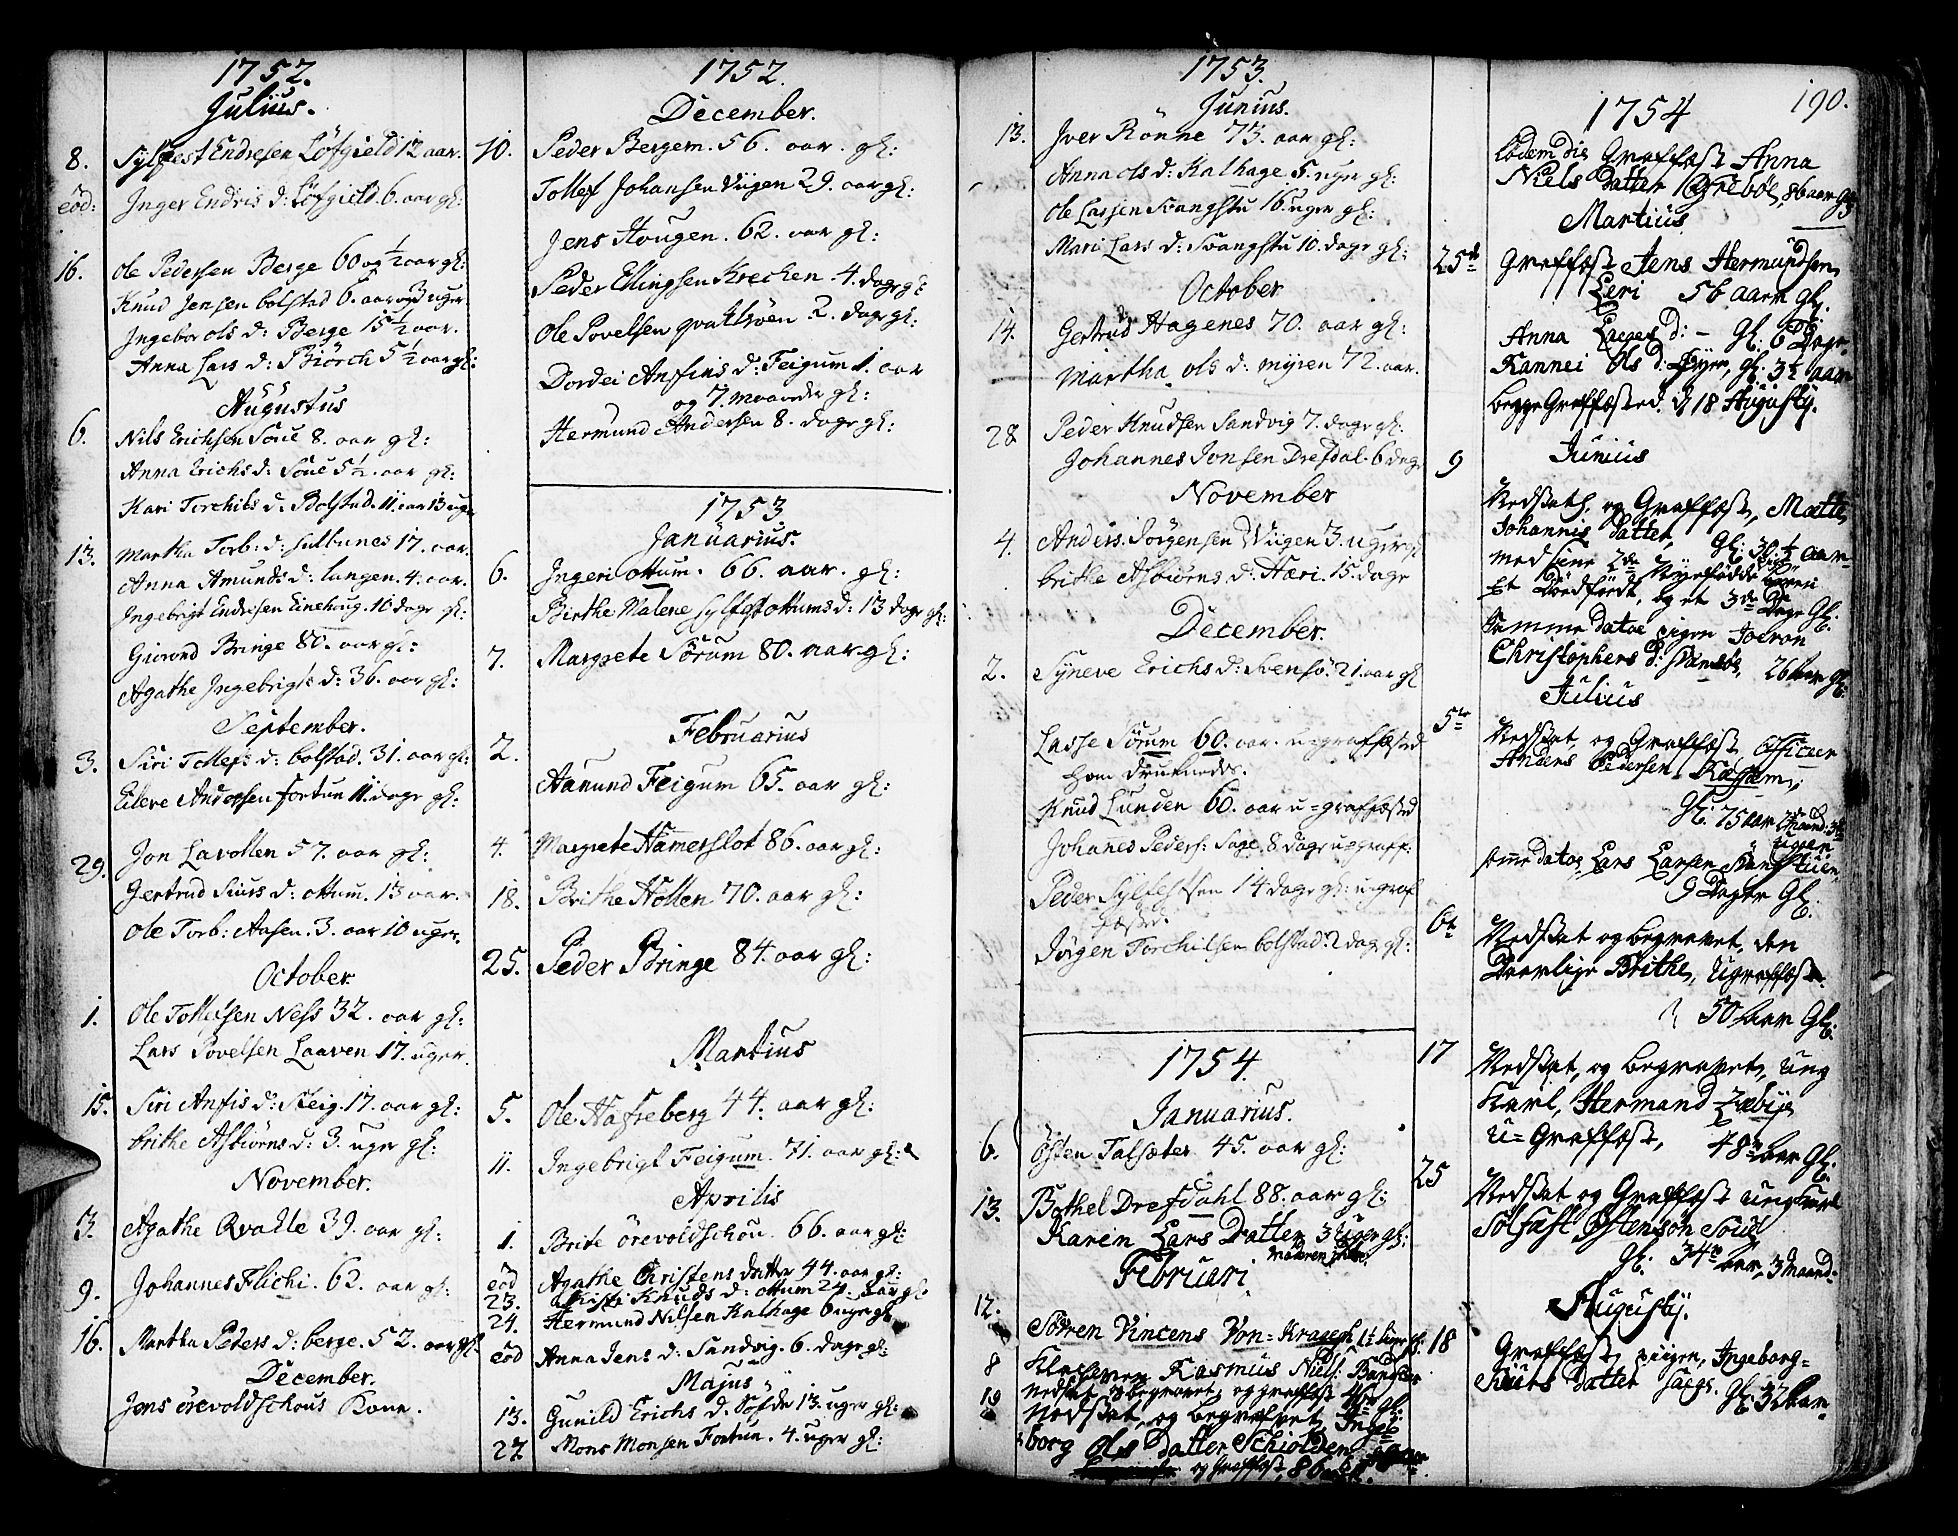 1752.
Julius.
8. Sylfest Endresen Löfgield 12 aar.
eod: Inger Endris d: Löfgield 6. aar gl:
16. Ole Pedersen Berge 60 og ½ aar gl:
Knud Jensen bolstad 6. aar og 3 uger
Ingebor ols d: Berge 15½ aar.
Anna Lars d: Biörch 5½ aar gl:
Augustus
6. Nils Erichsen Soue 8. aar gl:
Anna Erichs d: Soue 5½. aar gl:
Kari Torchils d. Bolstad. 11. aar 13 uger
13. Martha Torb: d: 17. aar.
Anna Amunds d: langen. 4. aar.
Ingebrigt Endresen 10 dage gl:
Giorond Bringe 80. aar gl:
Agathe Ingebrigts d: 36. aar gl:
September.
3. Siri Tollefs d: bolstad. 31. aar gl:
Eileve Andersen fortun 11. dage gl:
29. Jon Lavollen 57. aar gl:
Gertrud Siurs d: ottum. 13 aar.
Ole Torb: Aasen. 3. aar 10 uger.
October.
1. Ole Tollefsen Ness 32. aar gl:
Lars Povelsen Laaven 17. uger.
15. Siri Anfis d: Steig. 17. aar gl:
brithe Asbiörns d: 3. uger gl:
November.
3. Agathe Qvalle 39. aar gl:
9. Johannes Flichi. 62. aar gl:
16. Martha Peders d: berge. 52. aar gl:
December.
Jens örevoldschous Kone.
1752.
December.
10. Peder Bergem. 56. aar. gl:
Tollef Johansen Viigen 29. aar gl:
Jens Hougen. 62. aar gl:
Peder Ellingsen Krechen 4. dage gl:
Ole Povelsen 2. dage gl:
Dordei Anffins d: Feigum 1. aar
og 7. maaneder gl:
Hermund Andersen 8. dage gl:
1753
Januarius.
6. Ingeri ottum. 66. aar. gl:
Birthe Malene Sylfest ottums d: 13 dage gl:
7. Margrete Sörum 80. aar gl:
Februarius
2. Aamund Feigum 65. aar gl:
4. Margrete Hamerslot 86. aar gl:
18. Brithe Hollen 70. aar gl:
25. Peder Bringe 84. aar gl:
Martius
5. Ole Hafreberg 44. aar gl:
11. Ingebrigt Feigum. 71. aar gl:
Aprilis
1. Brite örevoldschou. 66. aar gl:
eod Agathe Christens datter 44. aar gl:
23. Knuds d: ottum 24. aar gl
24. Hermund Nilsen Kalhage 6 uger gl
eod Anna Jens d: Sandvig. 6. dage gl:
Majus
13. Gunild Erichs d. Söfde 13. uger gl:
27. Mons Monsen Fortun. 4. uger gl:
1753.
Junius.
13. Iver Rönne 73. aar gl:
Anna ols d: Kalhage 5. uger gl:
Ole Larsen Svangstu 16. uger gl:
Mari Lars d: Svangstu 10. dage gl:
October
14. Gertrud Hagenes 70. aar gl:
Martha ols d: myren 72. aar.
28 Peder Knudsen Sandvig 7. dage gl:
Johannes Jonsen Drefdal. 6 dage
November
4. Anders. Jörgensen Wiigen 3. uger gl
brithe Asbiörns d: Hæri. 15. dage
December.
2. Syneve Erichs d: Svensö. 21. aar gl
Lasse Sörum 60. aar. u=graffæsted
Knud Lunden 60. aar u=graffæsted
Johanes Peders: Sage. 8 dage u=graff:
Peder Sylfestsen 14 dage gl: u=graf
fæstet.
Jörgen Torchilsen bolstad. 2 dage gl:
1754.
Januarius.
6. Östen Talsæter 45. aar gl:
13. Bothel Drefdahl 88. aar gl:
Karen Lars Datter 3 uger gl:
Februari
12. Sören Vincens Von=Kragegh
8 Rasmus Niels:
19 Nedsat, og begravet, Ingeb
borg Ols Datter Schiolden
og graffæst, 86 aar gl.
190.
1754
Lodem die, Graffæst Anna
Niels Datter 86 aar gl
Martius
25de Graffæst Jens Hermundsen
Leri 56 aar gl.
Anna D: – gl: 6 Dage.
Rannei Ols d: gl: 3½ aar
begge Graffæsted. d 18 Augustij.
Junius
9 Nedsat, og Graffæst, Matte
Johannis Datter, gl: 30½ aar
med siene 2de Nyefødde börn
Et Dödfødt, og et 3de Dage Gl.
Samme datoe
Christophers d: 26 aar gl:
Julius
5te Nedsat, og Graffæst, Officeer
Anders Pedersen
gl. 75 aar
samme datoe, Lars Larsen
9 Dage Gl.
6te Nedsat og begravet, den
Brithe, Ugraffæst.
50 aar Gl.
17 Nedsat, og begravet, Ung
Karl, Hermand
U=Graffæst, 48 aar Gl.
25 Nedsat og Graffæst ungkarl
Solfast Östensøn
gl. 34 aar, 3 Maand.
Augustij.
18 Graffæst piigen, Ingeborg=
Siurs Datter gl: 32 aar